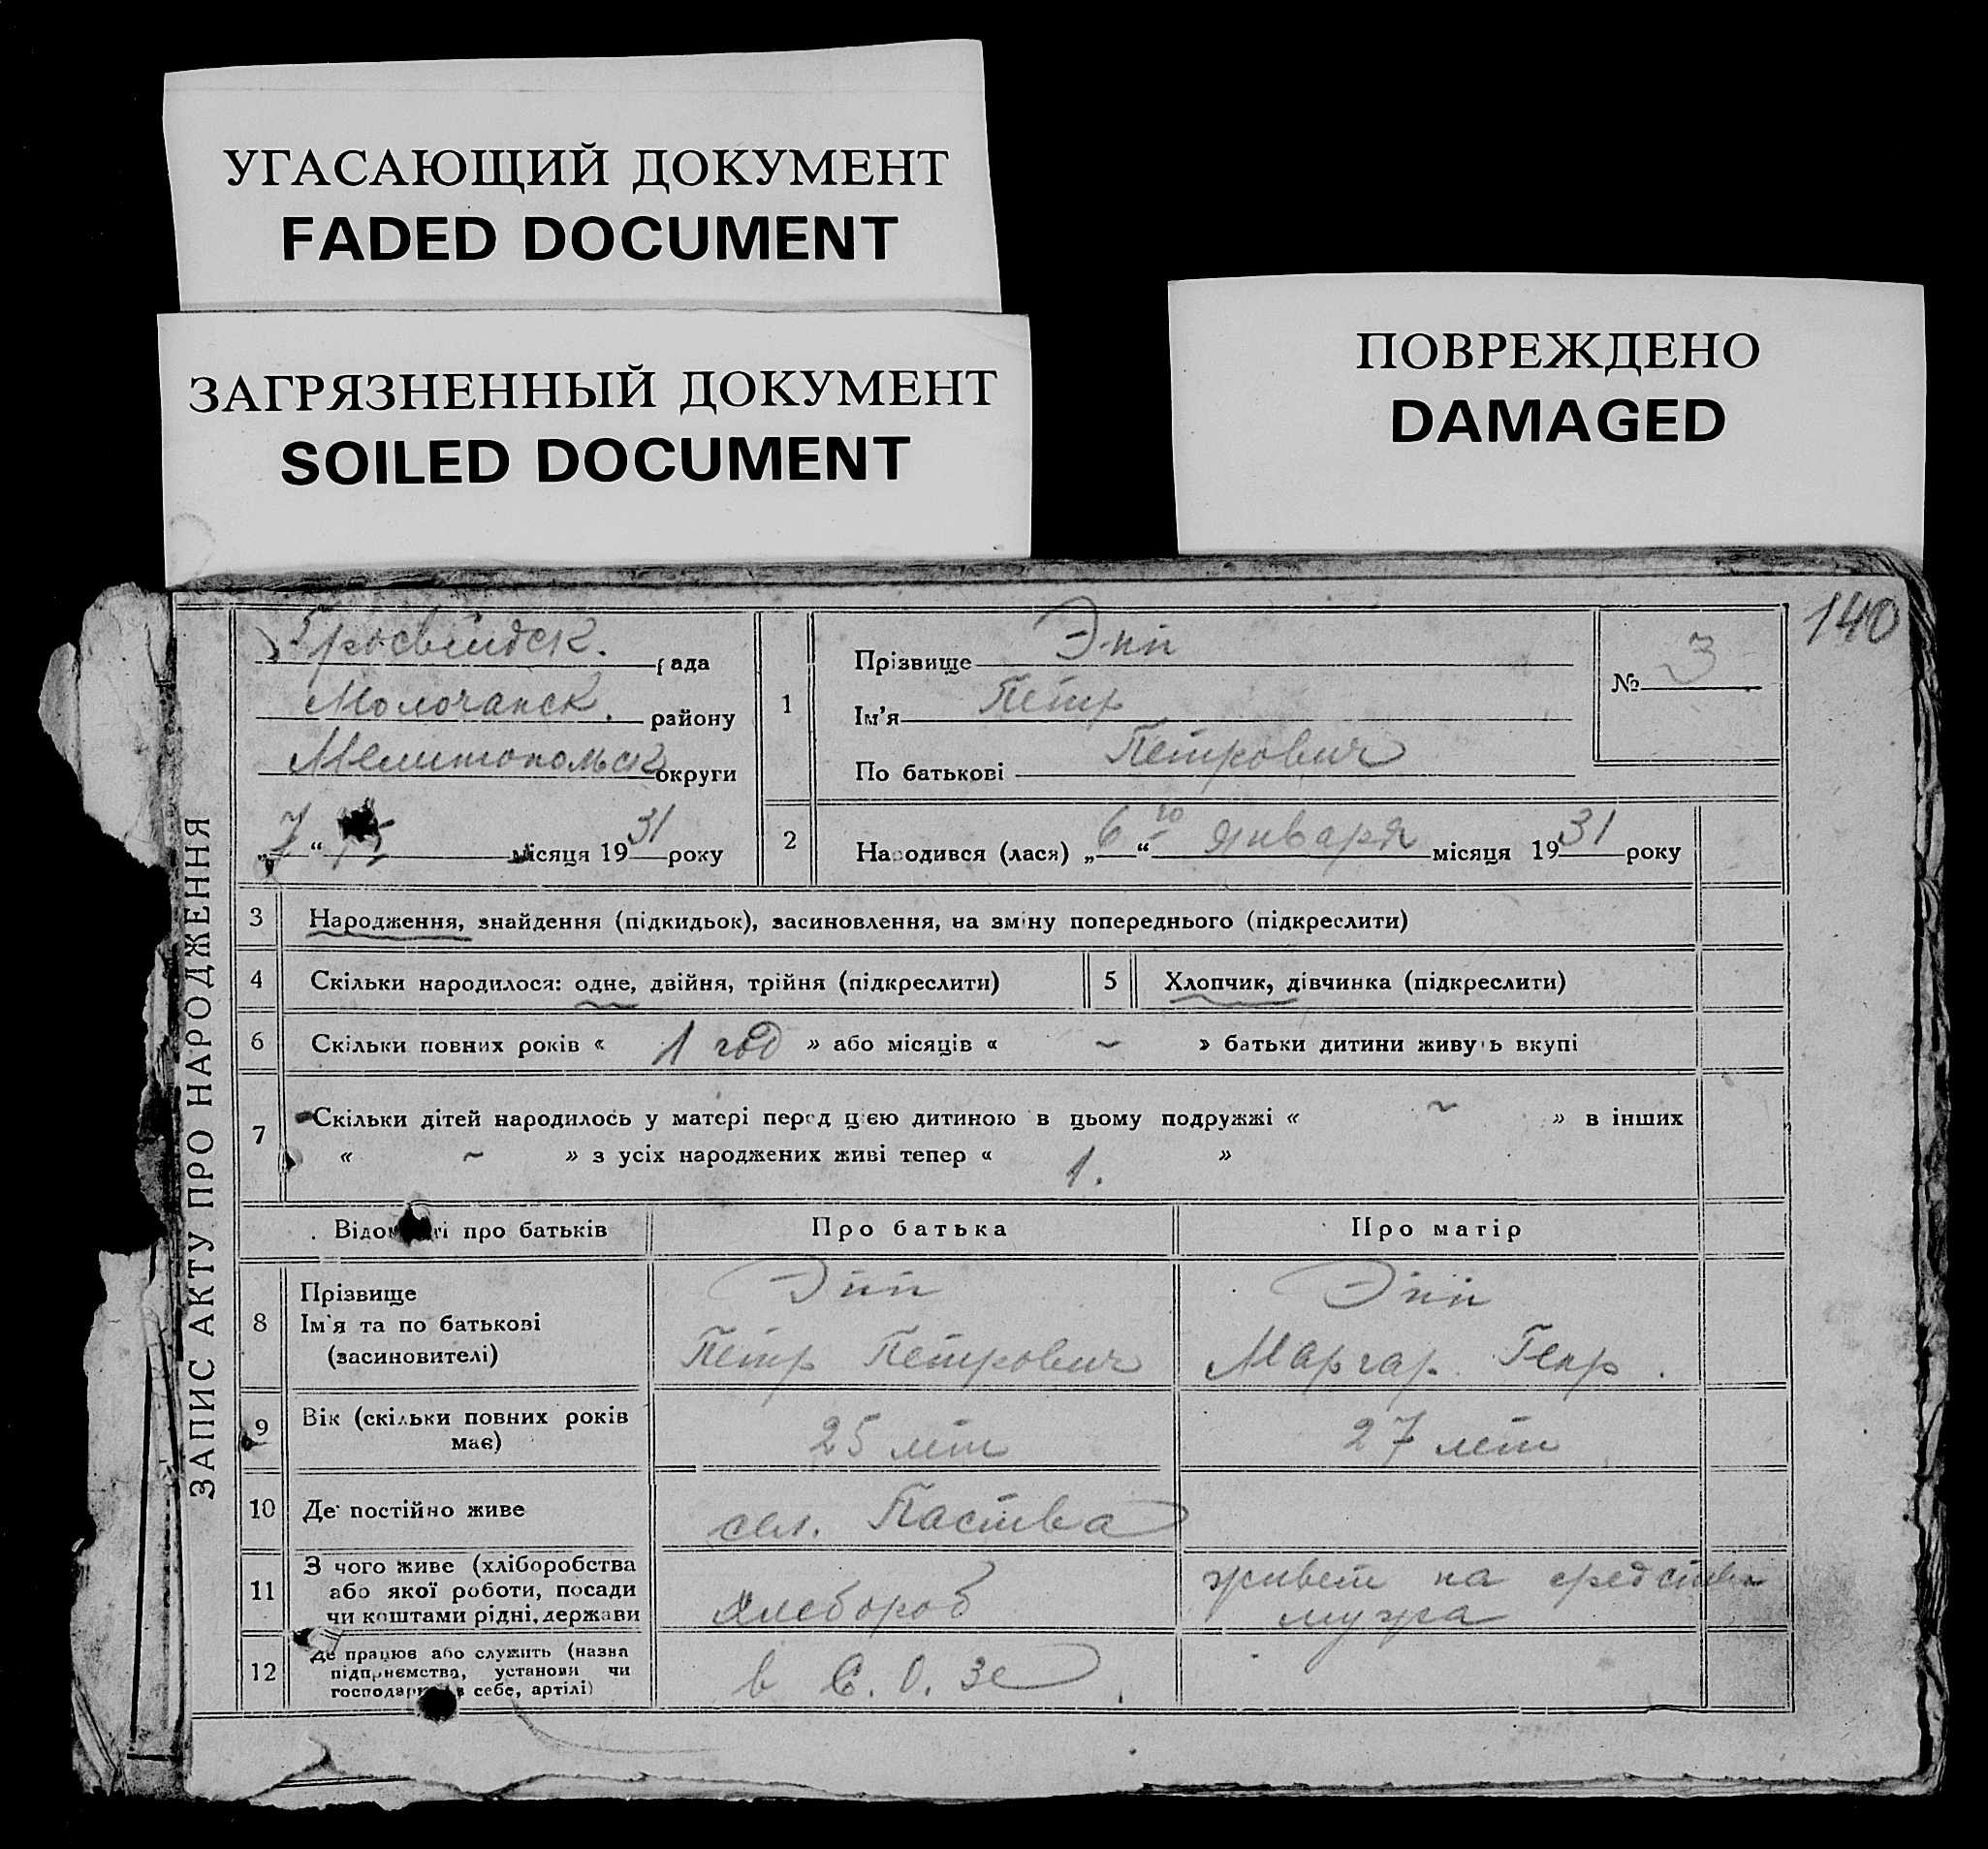 УГАСАЮЩИЙ ДОКУМЕНТ
FADED DOCUMENT
ЗАГРЯЗНЕННЫЙ ДОКУМЕНТ
SOILED DOCUMENT
ПОВРЕЖДЕНО
DAMAGED
140
ЗАПИС АКТУ ПРО НАРОДЖЕННЯ
рада
Молочанск. району
Мелитопольск округи
„7“ місяця 1931 року
1
Прізвище Эпп
Ім'я Петр
По батькові Петрович
№ 3
2
Народився (лася) „6го“ Января місяця 1931 року
3 Народження, знайдення (підкидьок), засиновлення, на зміну попереднього (підкреслити)
4 Скільки народилося: одне, двійня, трійня (підкреслити)
5 Хлопчик, дівчинка (підкреслити)
6 Скільки повних років « 1 год » або місяців « ~ » батьки дитини живуть вкупі
7 Скільки дітей народилось у матері перед цією дитиною в цьому подружжі « ~ » в інших
« ~ » з усіх народжених живі тепер « 1. »
Відомості про батьків Про батька Про матір
8 Прізвище
Ім'я та по батькові
(засиновителі)
Эпп
Петр Петрович
Эпп
Маргар. Генр.
9 Вік (скільки повних років
має)
25 лет
27 лет
10 Де постійно живе
сел. Паства
11 З чого живе (хліборобства
або якої роботи, посади
чи коштами рідні, держави
хлебороб
живет на средства
мужа
12 Де працює або служить (назва
підприємства, установи чи
господарює в себе, артілі)
в С. О. Зе